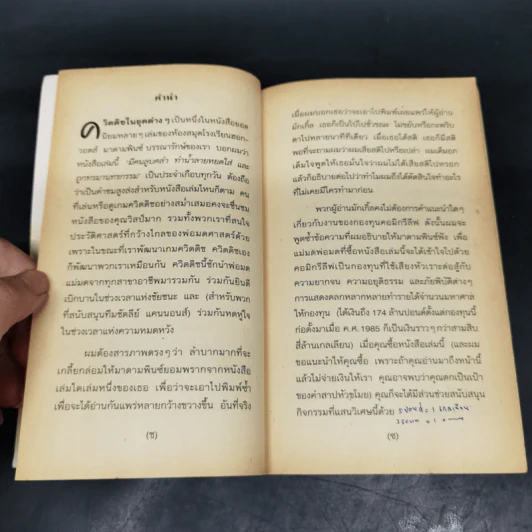 คำนำ
ควิดดิชในยุคต่าง ๆ เป็นหนึ่งในหนังสือยอด
นิยมหลาย ๆ เล่มของห้องสมุดโรงเรียนฮอก-
วอตส์ มาดามพินซ์ บรรณารักษ์ของเรา บอกผมว่า
หนังสือเล่มนี้ 'มีคนลูบคลำ ทำน้ำลายหยดใส่ และ
ถูกทรมานทรกรรม' เป็นประจำเกือบทุกวัน ต้องถือ
ว่าเป็นคำชมสูงส่งสำหรับหนังสือเล่มไหนก็ตาม คน
ที่เล่นหรือดูเกมควิดดิชอย่างสม่ำเสมอคงจะชื่นชม
หนังสือของคุณวิสป์มาก รวมทั้งพวกเราที่สนใจ
ประวัติศาสตร์ที่กว้างไกลของพ่อมดศาสตร์ด้วย
เพราะในขณะที่เราพัฒนาเกมควิดดิช ควิดดิชเอง
ก็พัฒนาพวกเราเหมือนกัน ควิดดิชนี้ชักนำพ่อมด
แม่มดจากทุกสาขาอาชีพมารวมกัน ร่วมกันยินดี
เบิกบานในช่วงเวลาแห่งชัยชนะ และ (สำหรับพวก
ที่สนับสนุนทีมชัดลีย์ แคนนอนส์) ร่วมกันหดหู่ใจ
ในช่วงเวลาแห่งความหมดหวัง
ผมต้องสารภาพตรงๆ ว่า ลำบากมากที่จะ
เกลี้ยกล่อมให้มาดามพินซ์ยอมพรากจากหนังสือ
เล่มใดเล่มหนึ่งของเธอ เพื่อว่าจะเอาไปพิมพ์ซ้ำ
เพื่อจะได้อ่านกันแพร่หลายกว้างขวางขึ้น อันที่จริง
(ช)
เมื่อผมบอกเธอว่าจะเอาไปพิมพ์เผยแพร่ให้ผู้อ่าน
มักเกิ้ล เธอก็เป็นใบ้ไปชั่วขณะ ไม่ขยับหรือกะพริบ
ตาไปหลายนาทีทีเดียว เมื่อเธอได้สติ เธอก็มีสติ
พอที่จะถามผมว่าผมเสียสติไปหรือเปล่า ผมเต็มอก
เต็มใจพูดให้เธอมั่นใจว่าผมไม่ได้เสียสติไปหรอก
แล้วก็อธิบายต่อไปว่าทำไมผมถึงได้ตัดสินใจทำอะไร
ที่ไม่เคยมีใครทำมาก่อน
พวกผู้อ่านมักเกิ้ลคงไม่ต้องการคำแนะนำใดๆ
เกี่ยวกับงานของกองทุนคอมิกรีลีฟ ดังนั้นผมจะ
พูดซ้ำข้อความที่ผมอธิบายให้มาดามพินซ์ฟัง เพื่อ
แม่มดพ่อมดที่ซื้อหนังสือเล่มนี้จะได้เข้าใจไปด้วย
คอมิกรีลีฟเป็นกองทุนที่ใช้เสียงหัวเราะต่อสู้กับ
ความยากจน ความอยุติธรรม และภัยพิบัติต่างๆ
การแสดงตลกหลากหลายทำรายได้จำนวนมหาศาล
ให้กองทุน (ได้เงินถึง 174 ล้านปอนด์ตั้งแต่กองทุนนี้
ก่อตั้งมาเมื่อ ค.ศ. 1985 ก็เป็นเงินราว ๆ กว่าสามสิบ
สี่ล้านเกลเลียน) เมื่อคุณซื้อหนังสือเล่มนี้ (และผม
ขอแนะนำให้คุณซื้อ เพราะถ้าคุณอ่านมาถึงหน้านี้
แล้วไม่จ่ายเงินให้เรา คุณอาจพบว่าคุณตกเป็นเป้า
ของคำสาปหัวขโมย) คุณก็จะได้มีส่วนช่วยสนับสนุน
กิจกรรมที่แสนวิเศษนี้ด้วย
(ซ)